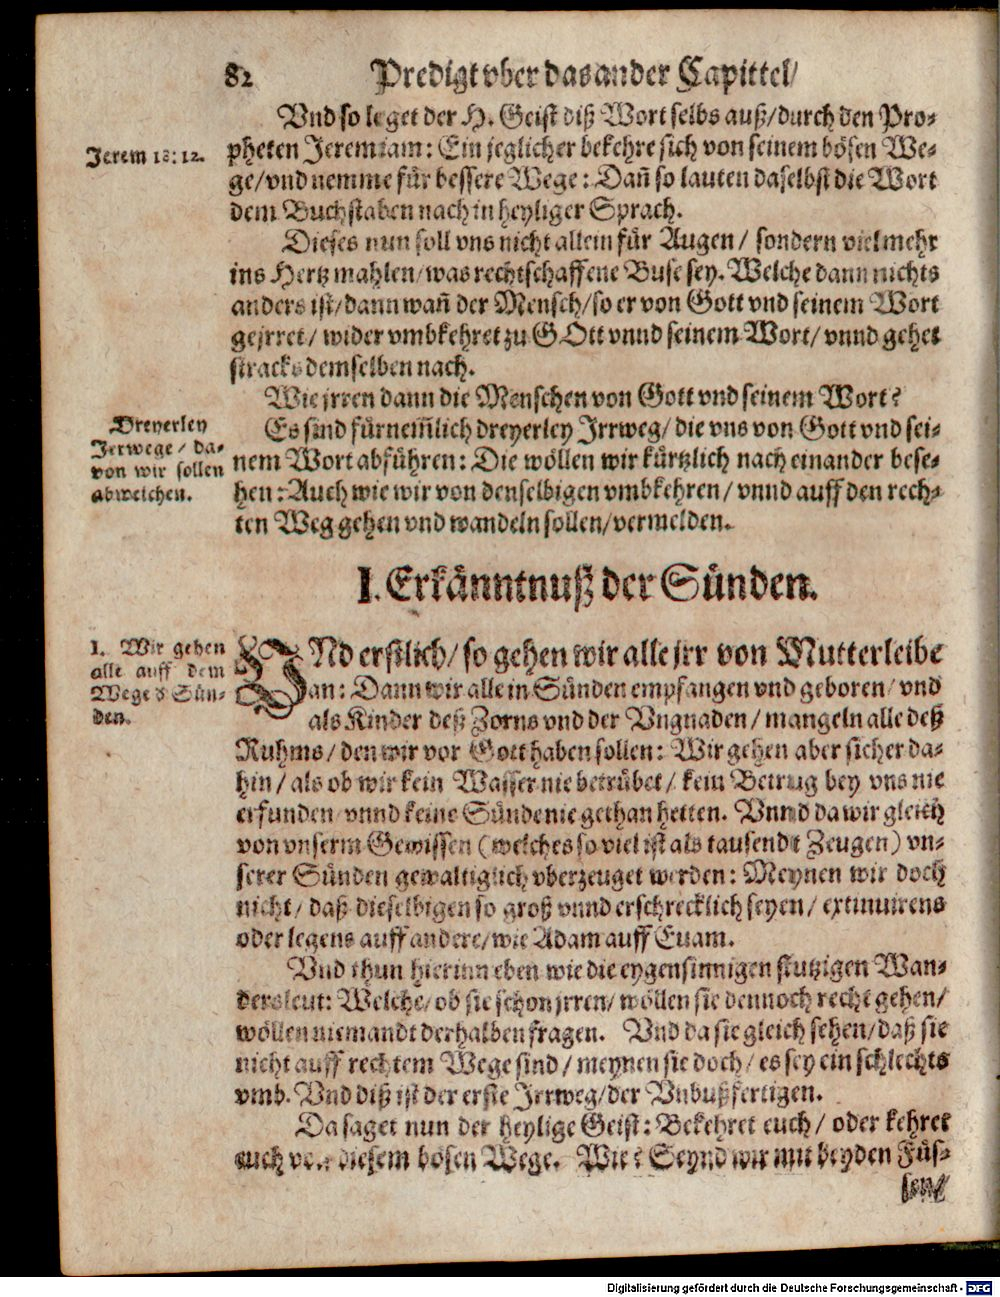 82 Predigt vber das ander Capittel/
Vnd so leget der H. Geist diß Wort selbs auß/durch den Pro-
Jerem 18: 12.
pheten Jeremiam: Ein jeglicher bekehre sich von seinem bösen We-
ge/vnd nemme für bessere Wege: Dañ so lauten daselbst die Wort
dem Buchstaben nach in heyliger Sprach.
Dieses nun soll vns nicht allein für Augen/ sondern vielmehr
ins Hertz mahlen/was rechtschaffene Buse sey. Welche dann nichts
anders ist/dann wañ der Mensch/so er von Gott vnd seinem Wort
gejrret/ wider vmbkehret zu GOtt vnnd seinem Wort/ vnnd gehet
stracks demselben nach.
Wie jrren dann die Menschen von Gott vnd seinem Wort?
Dreyerley
Jrrwege / da-
von wir sollen
abweichen.
Es sind fürnem̃lich dreyerley Jrrweg/ die vns von Gott vnd sei-
nem Wort abführen: Die wöllen wir kürtzlich nach einander bese-
hen: Auch wie wir von denselbigen vmbkehren/ vnnd auff den rech-
ten Weg gehen vnd wandeln sollen/vermelden.
I. Erkänntnuß der Sünden.
1. Wir gehen
alle auff dem
Wege d Sün-
den.
VNd erstlich/ so gehen wir alle jrr von Mutterleibe
an: Dann wir alle in Sünden empfangen vnd geboren/ vnd
als Kinder deß Zorns vnd der Vngnaden/ mangeln alle deß
Ruhms/ den wir vor Gott haben sollen: Wir gehen aber sicher da-
hin/ als ob wir kein Wasser nie betrübet/ kein Betrug bey vns nie
erfunden/ vnnd keine Sünde nie gethan hetten. Vnnd da wir gleich
von vnserm Gewissen (welches so viel ist als tausendt Zeugen) vn-
serer Sünden gewaltiglich vberzeuget werden: Meynen wir doch
nicht/ daß dieselbigen so groß vnnd erschrecklich seyen/ extinuirens
oder legens auff andere/wie Adam auff Euam.
Vnd thun hierinn eben wie die eygensinnigen stutzigen Wan-
dersleut: Welche/ ob sie schon jrren/ wöllen sie dennoch recht gehen/
wöllen niemandt derhalben fragen. Vnd da sie gleich sehen/daß sie
nicht auff rechtem Wege sind / meynen sie doch/ es sey ein schlechts
vmb. Vnd diß ist der erste Jrrweg/der Vnbußfertigen.
Da saget nun der heylige Geist: Bekehret euch/ oder kehret
euch von diesem bösen Wege. Wie? Seynd wir mit beyden Füs-
sen/
Digitalisierung gefördert durch die Deutsche Forschungsgemeinschaft - DFG